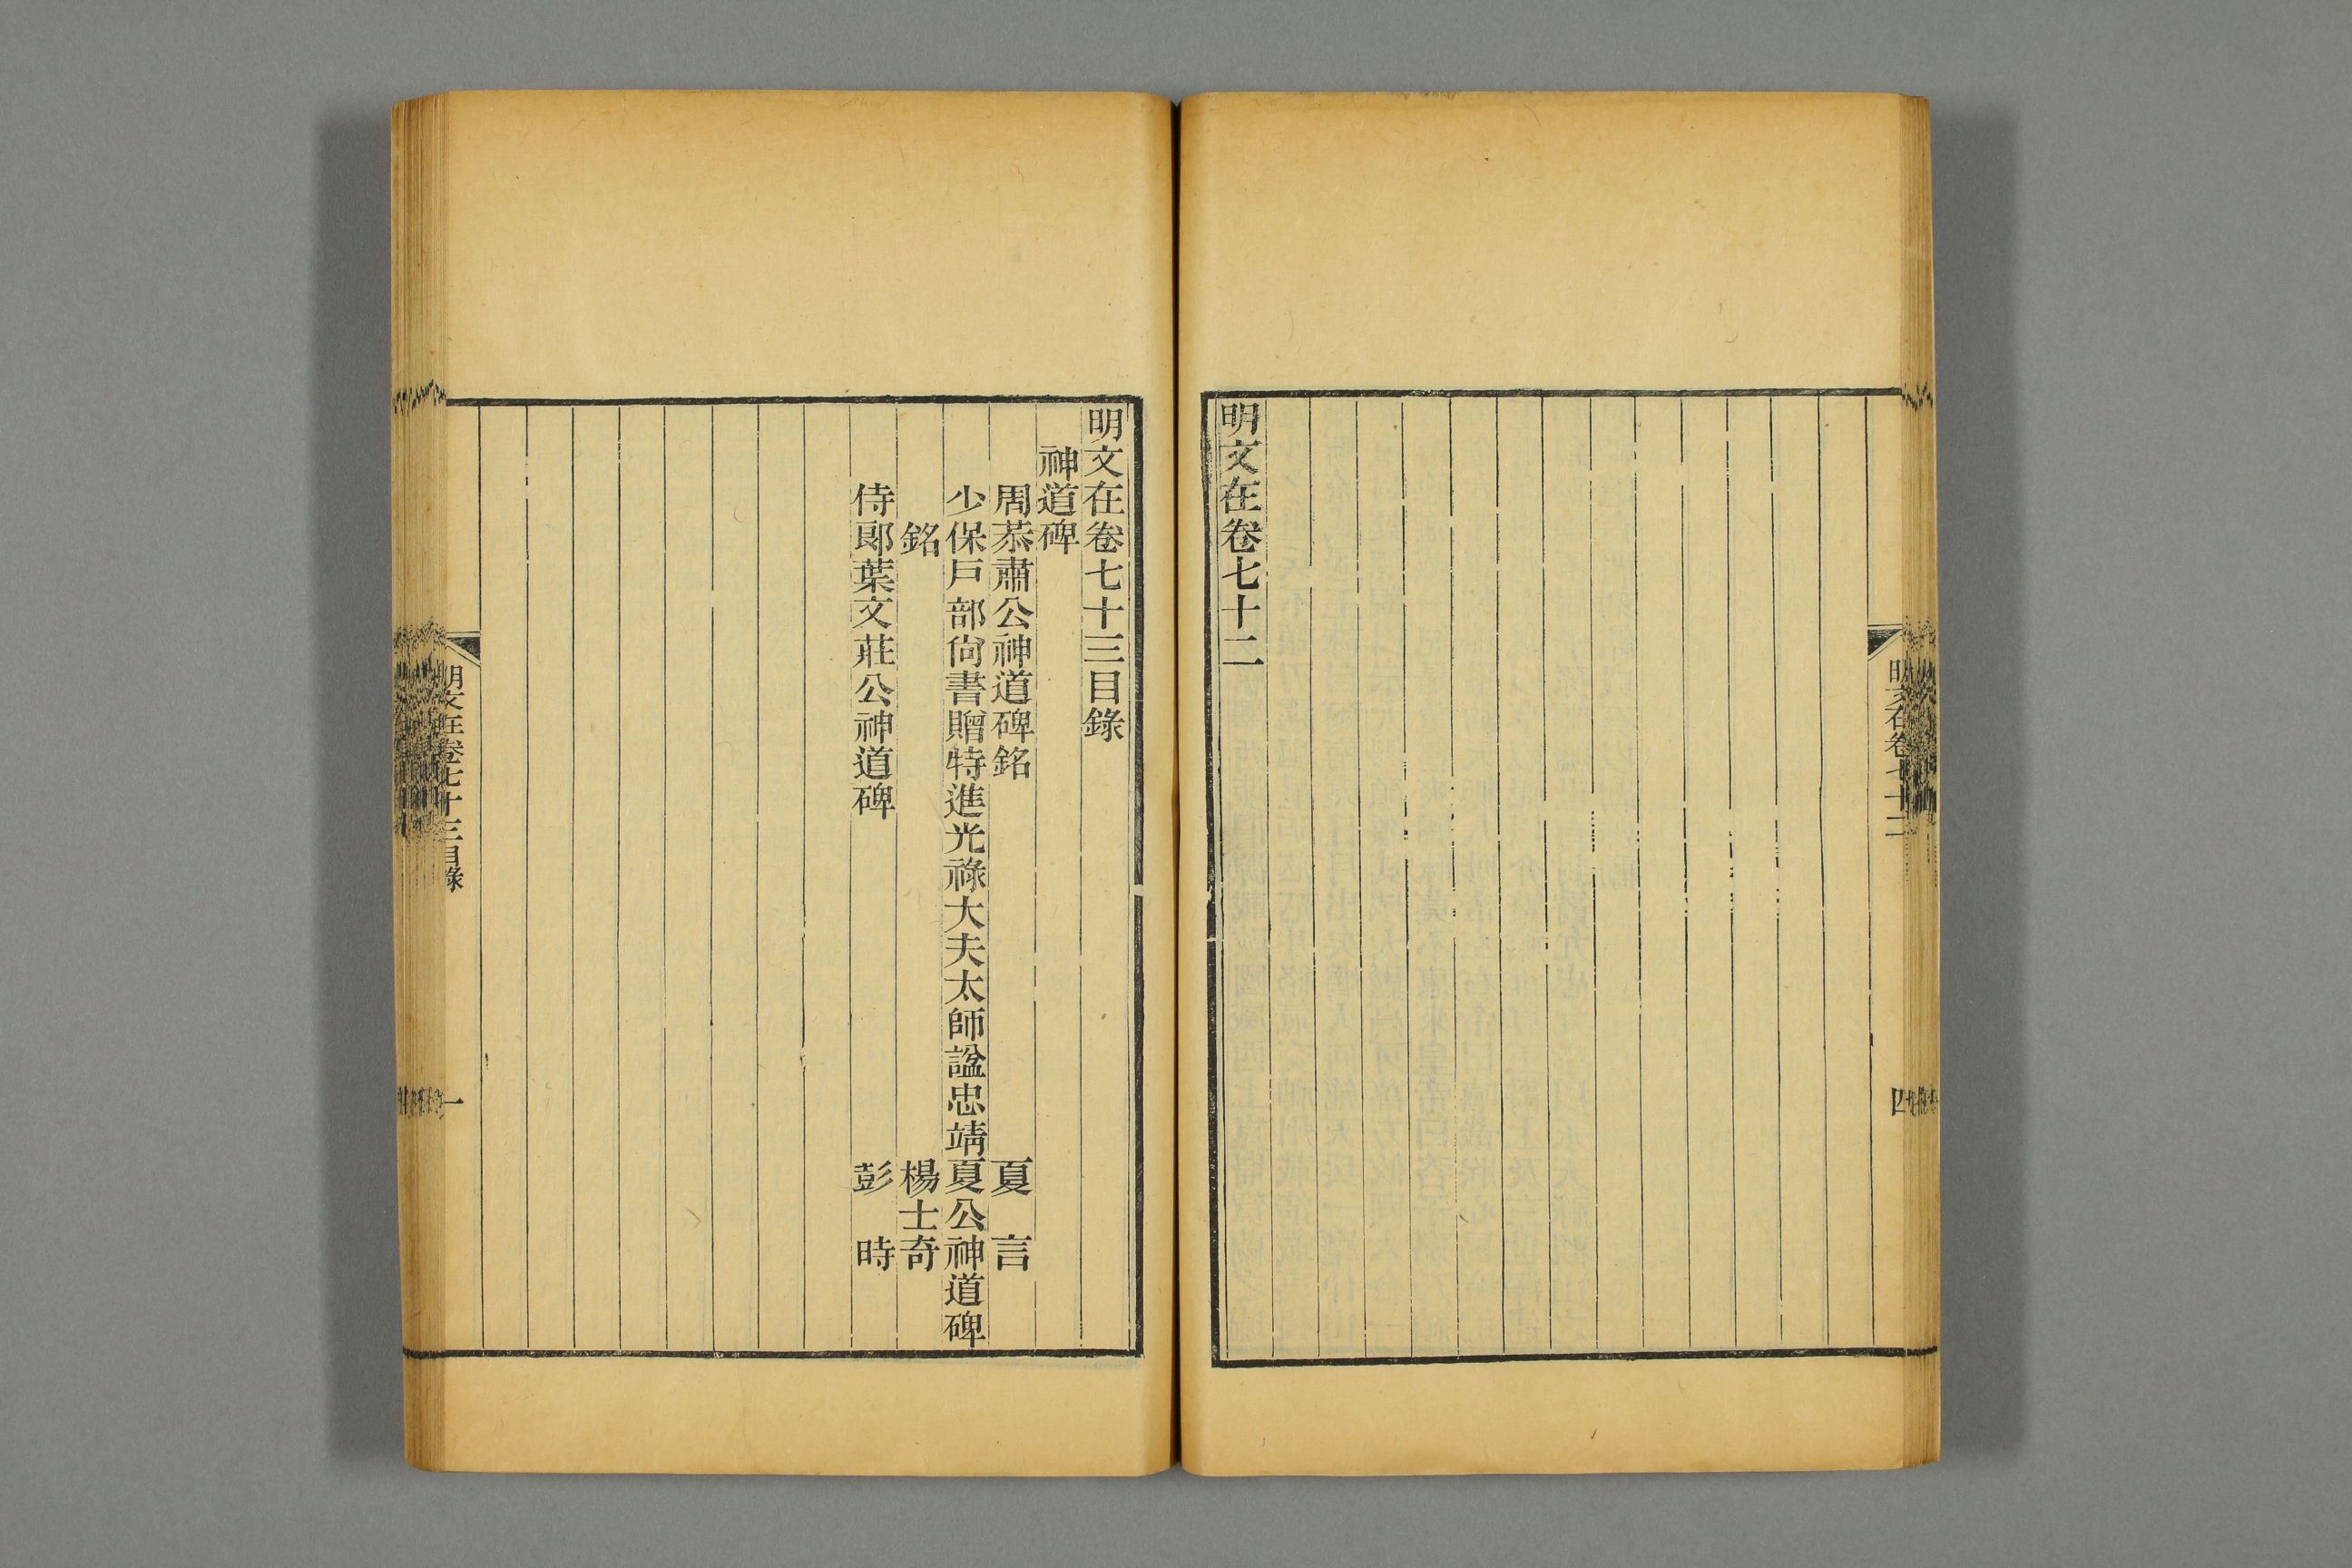 明文在卷七十二
四
明文在卷七十二
明文在卷七十三目錄
神道碑
周恭肅公神道碑銘 夏言
少保戶部尙書贈特進光祿大夫太師諡忠靖夏公神道碑
銘 楊士奇
侍郞葉文莊公神道碑 彭時
明文在卷七十三目錄
一